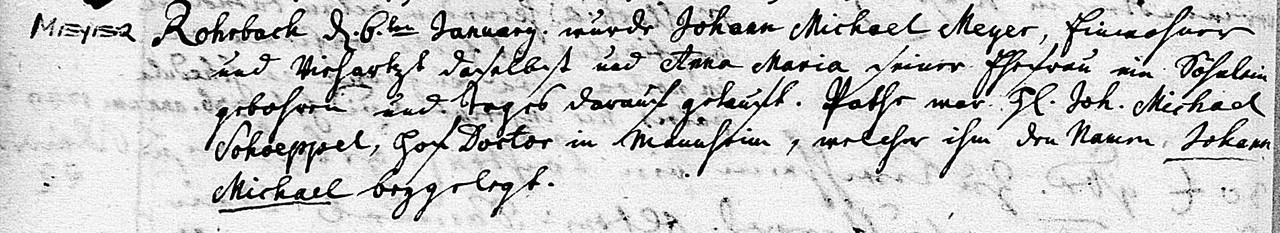 MEYER Rohrbach d. 6.ten January. wurde Johann Michael Meyer, Einwohner
und Viehartzt daselbst und Anna Maria seiner Ehefrau ein Söhnlein
gebohren und Tages darauf getauft. Pathe war H. Joh. Michael
Schoeppel, Hof Doctor in Mannheim, welcher ihm den Namen Johann
Michael beygelegt.